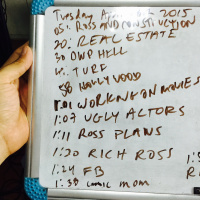 Tuesday 2015
05: ROSS AND CONSTRUCTION
20: REAL ESTATE
30 OWP HELL
TURF
58 HOLLYWOOD
1:01 WORKING ON MOVIES
1:07 UGLY ACTORS
1:11 ROSS PLANS
1:20 RICH ROSS
1:24 FB
1:38 MOM